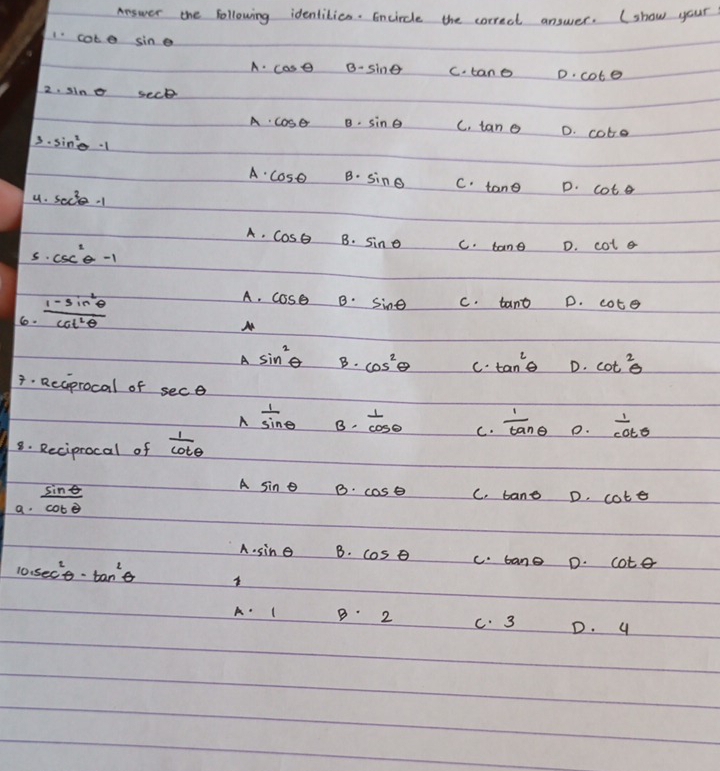 Answer the following identities. Encircle the correct answer. (show your
1. cot θ sin θ
A. cos θ B. sin θ C. tan θ D. cot θ
2. sin θ sec θ
A. cos θ B. sin θ C. tan θ D. cot θ
3. sin²θ -1
A. cos θ B. sin θ C. tan θ D. cot θ
4. sec²θ -1
A. cos θ B. sin θ C. tan θ D. cot θ
5. csc²θ -1
A. cos θ B. sin θ C. tan θ D. cot θ
6. 1-sin²θ / cot²θ
A sin²θ B. cos²θ C. tan²θ D. cot²θ
7. Reciprocal of sec θ
A 1/sin θ B. 1/cos θ C. 1/tan θ D. 1/cot θ
8. Reciprocal of 1/cot θ
A sin θ B. cos θ C. tan θ D. cot θ
9. sin θ / cot θ
A. sin θ B. cos θ C. tan θ D. cot θ
10. sec²θ - tan²θ
A. 1 B. 2 C. 3 D. 4